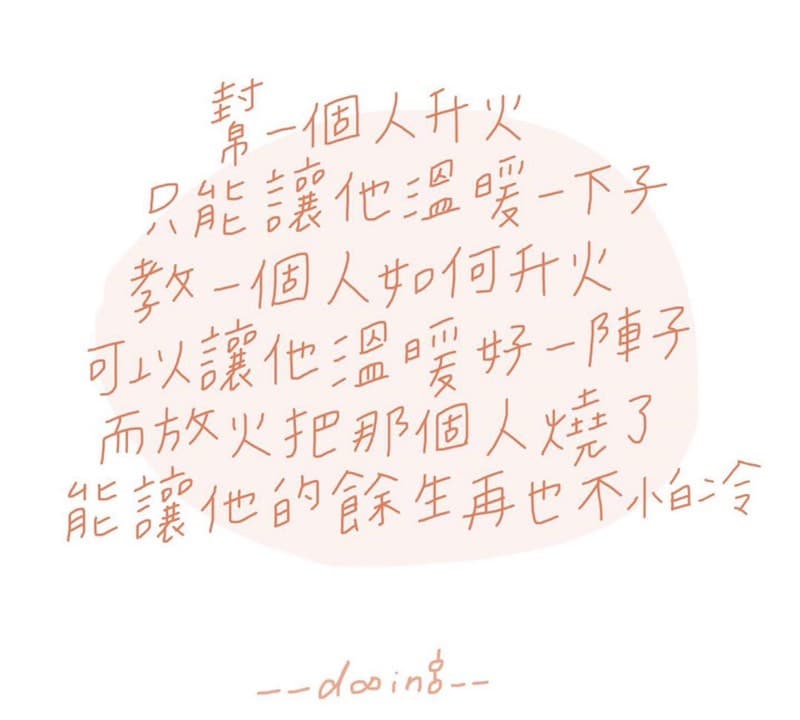 幫一個人升火
只能讓他溫暖一下子
教一個人如何升火
可以讓他溫暖好一陣子
而放火把那個人燒了
能讓他的餘生再也不怕冷
--dooing--